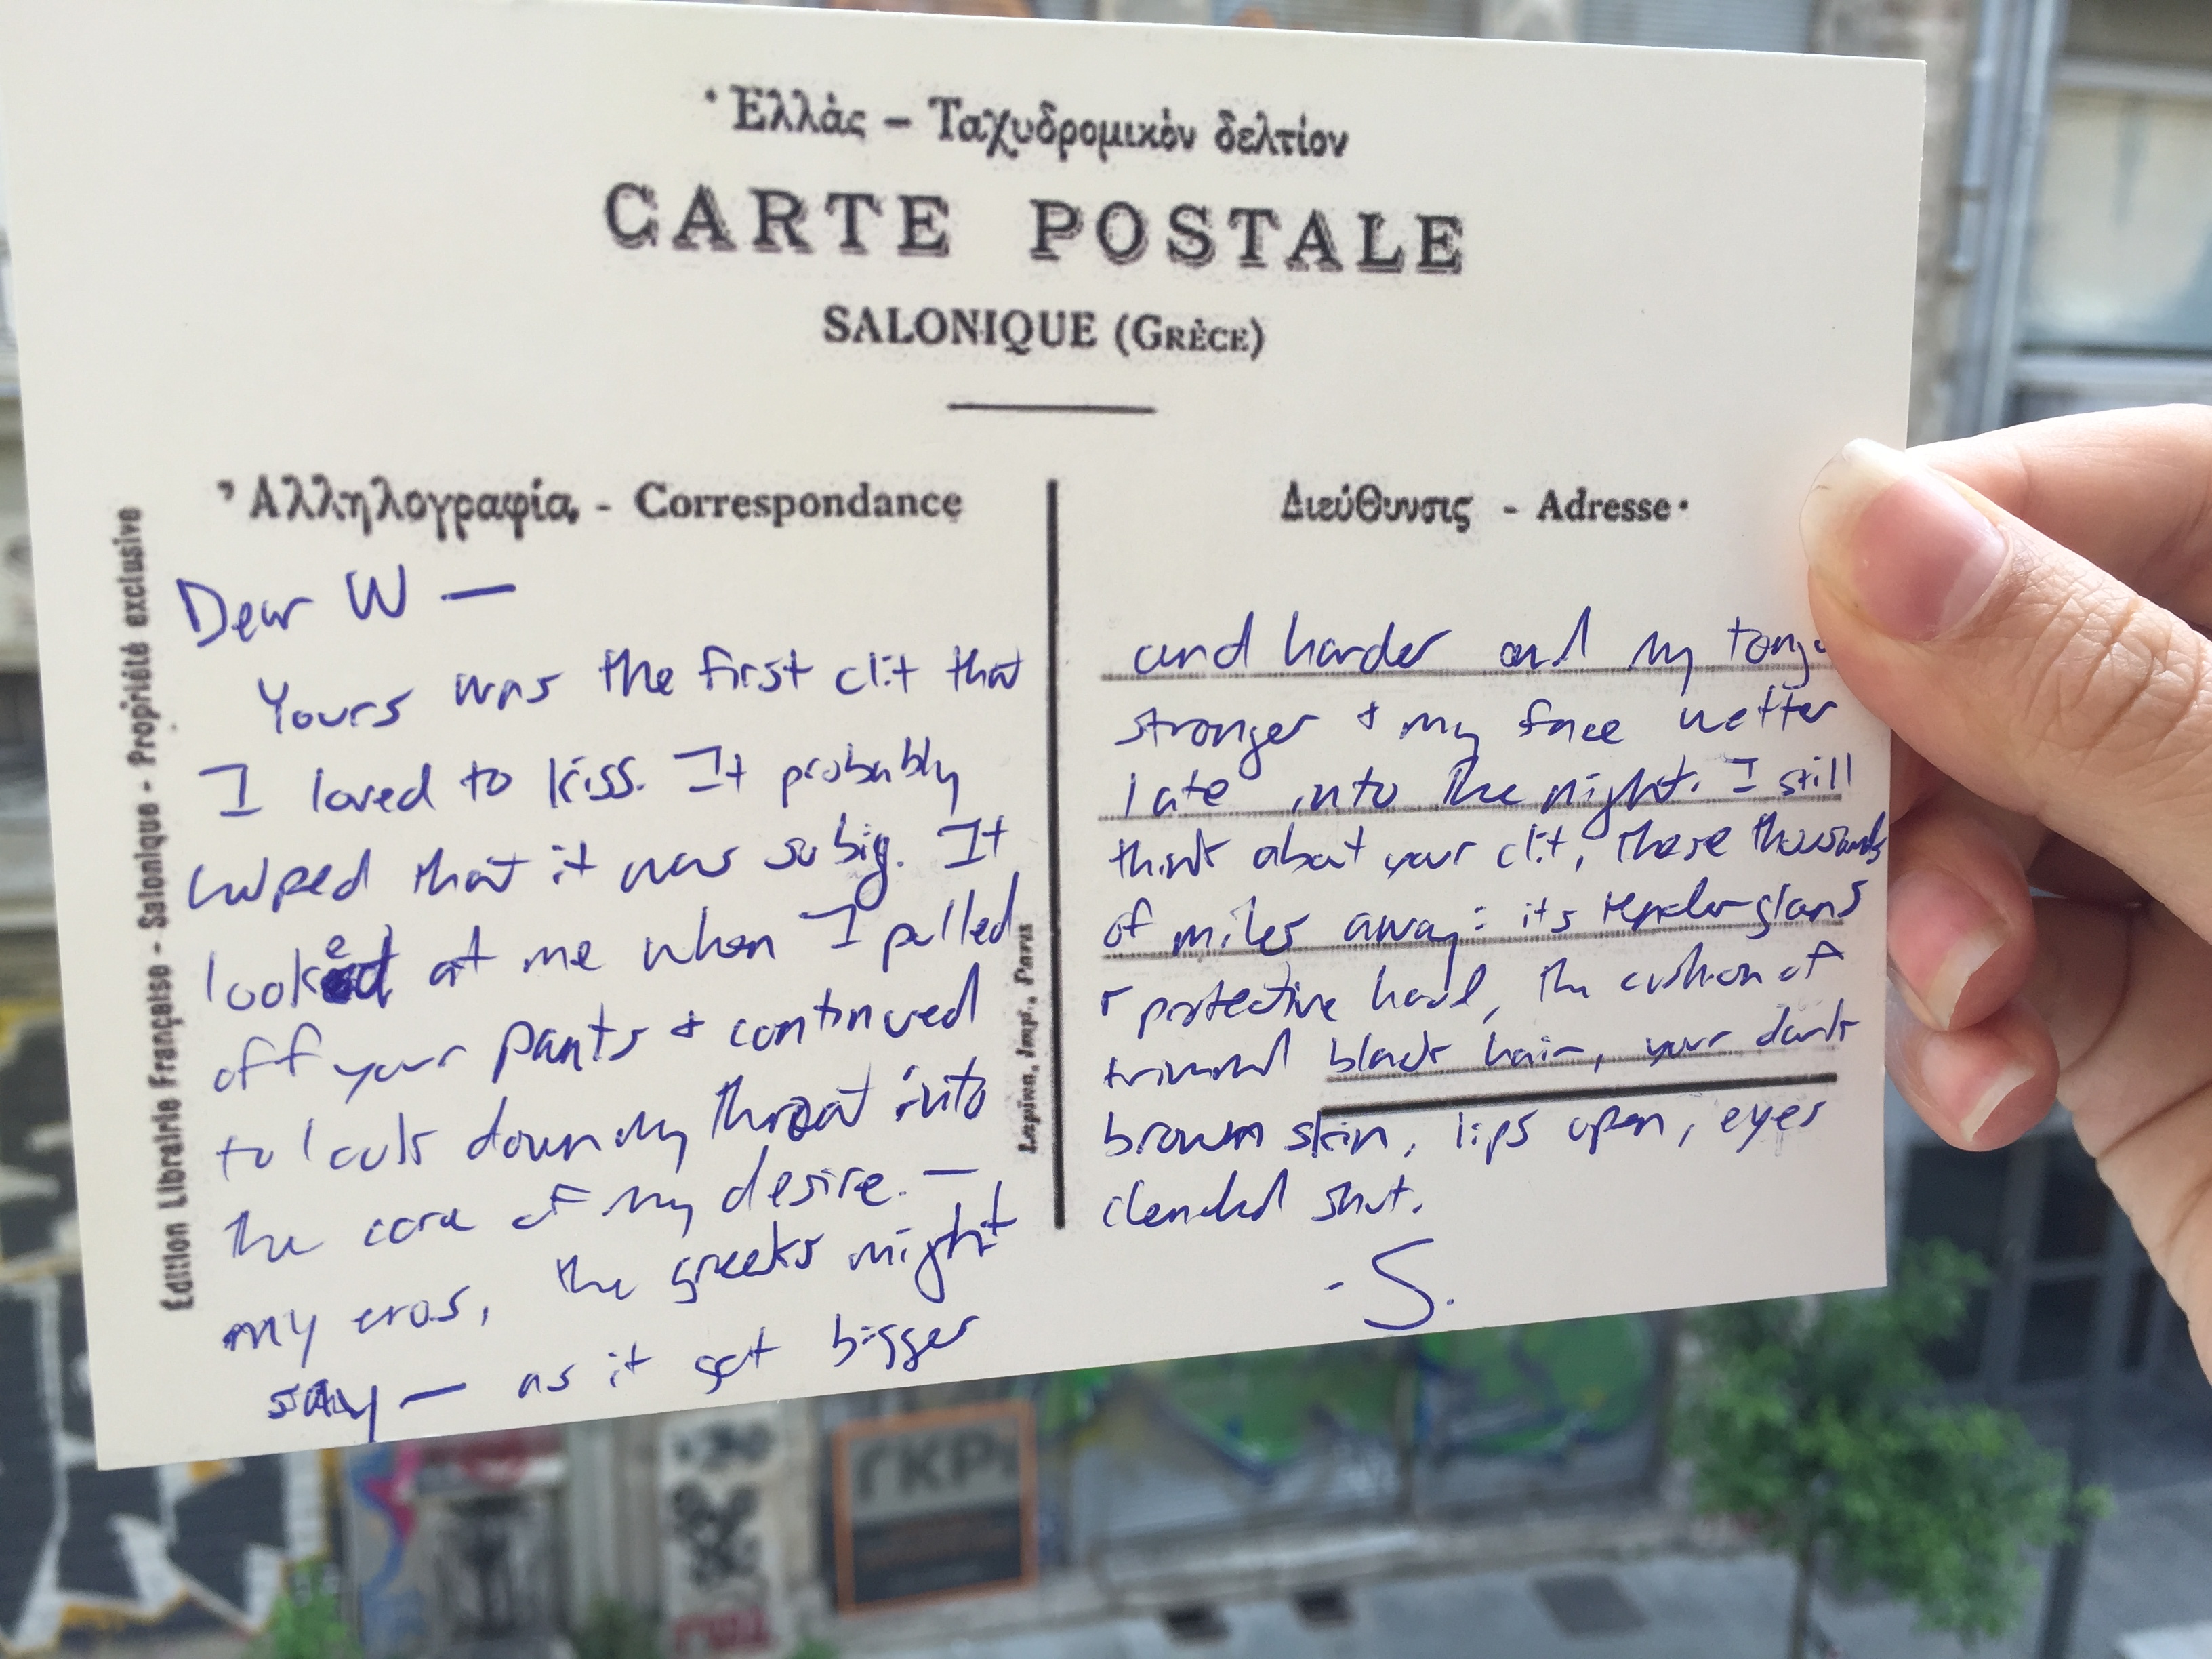 Ἑλλὰς – Ταχυδρομικὸν δελτίον
CARTE POSTALE
SALONIQUE (GRÈCE)
Ἀλληλογραφία - Correspondance
Διεύθυνσις - Adresse
Edition Librairie Française - Salonique - Propriété exclusive
Lapina, Imp. Paris
Dear W —
Yours was the first clit that
I loved to kiss. It probably
helped that it was so big. It
looked at me when I pulled
off your pants + continued
to look down my throat into
the core of my desire. —
my eros, the greeks might
say — as it got bigger
and harder and my
stronger + my face wetter
late into the night. I still
think about your clit, these thousands
of miles away: its tender glans
+ protective hood, the cushion of
trimmed black hair, your dark
brown skin, lips open, eyes
clenched shut.
-S.
ΓΚΡ